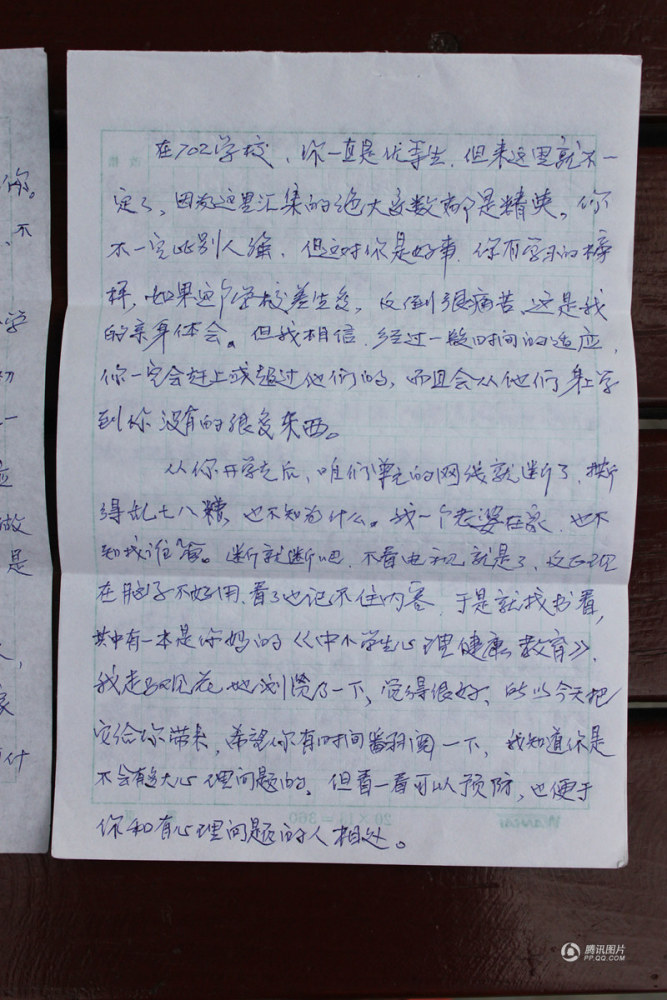 你。
不
学
初
一
应
做
是
家
什
在702学校、你一直是优等生.但来这里就不一
定了，因为这里汇集的绝大多数都是精英。你
不一定比别人强.但这对你是好事.你有学习的榜
样，如果这个学校差生多，反倒很痛苦.这是我
的亲身体会。但我相信.经过一段时间的适应，
你一定会赶上或超过他们的，而且会从他们身上学
到你没有的很多东西。
从你开学之后，咱们单元的网线就断了.
得乱七八糟，也不知为什么。我一个老婆在家.也不
知找谁。断就断吧.不看电视就是了.反正现
在脑子不好用.看了也记不住内容.于是就找书看，
其中有一本是你妈的《中小学生心理健康教育》.
我走马观花地浏览了一下、觉得很好、所以今天把
它给你带来，希望你有时间翻阅一下，我知道你是
不会有多大心理问题的.但看一看可以预防，也便于
你和有心理问题的人相处。
20×18=360
腾讯图片
PP.QQ.COM